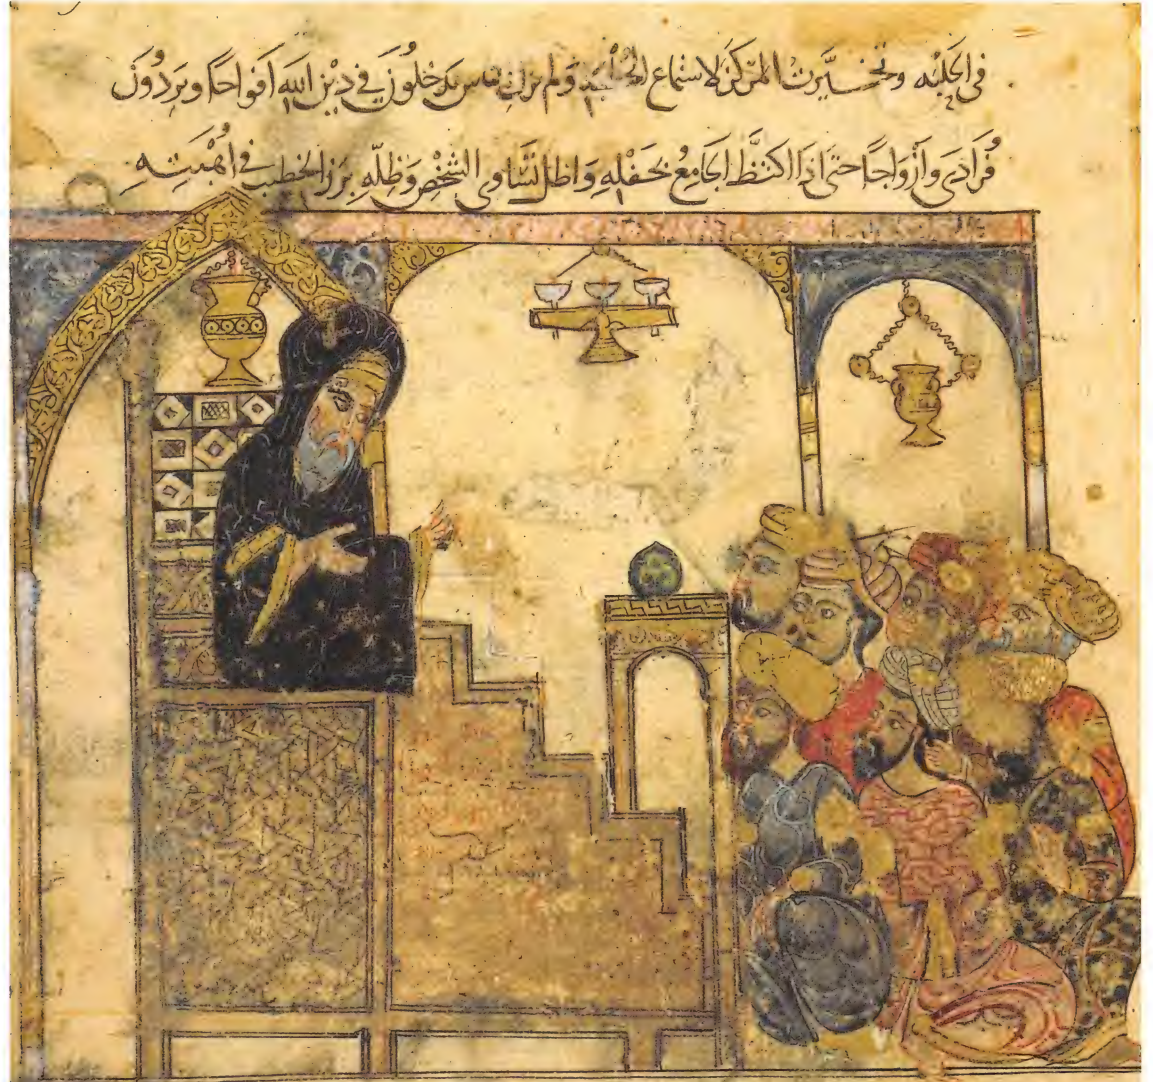 في الحلبه وتخيَّرتُ المركز لاستماع الخطبه ولم يزل الناس يدخلُون في دين الله أفواجًا ويردُونَ
فُرَادَى وأزْوَاجًا حتى اذا اكتظَّ الجامعُ بحَفْلِهِ وَاظل تَسَاوى الشخْص وَظِلّهِ برَز الخطيب في اُهْبَتِهِ